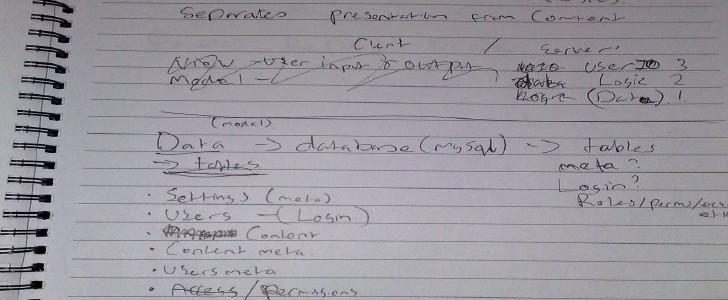 Separates presentation from Content
Client / Server
View - User input & output User IO 3
Model - Logic 2
(Data) 1
(model)
Data → database (mysql) → tables
→ tables meta?
Login?
• Settings (meta) Roles/perms/
• Users - (Login)
• Content
• Content meta
• Users meta
• Access / Permissions